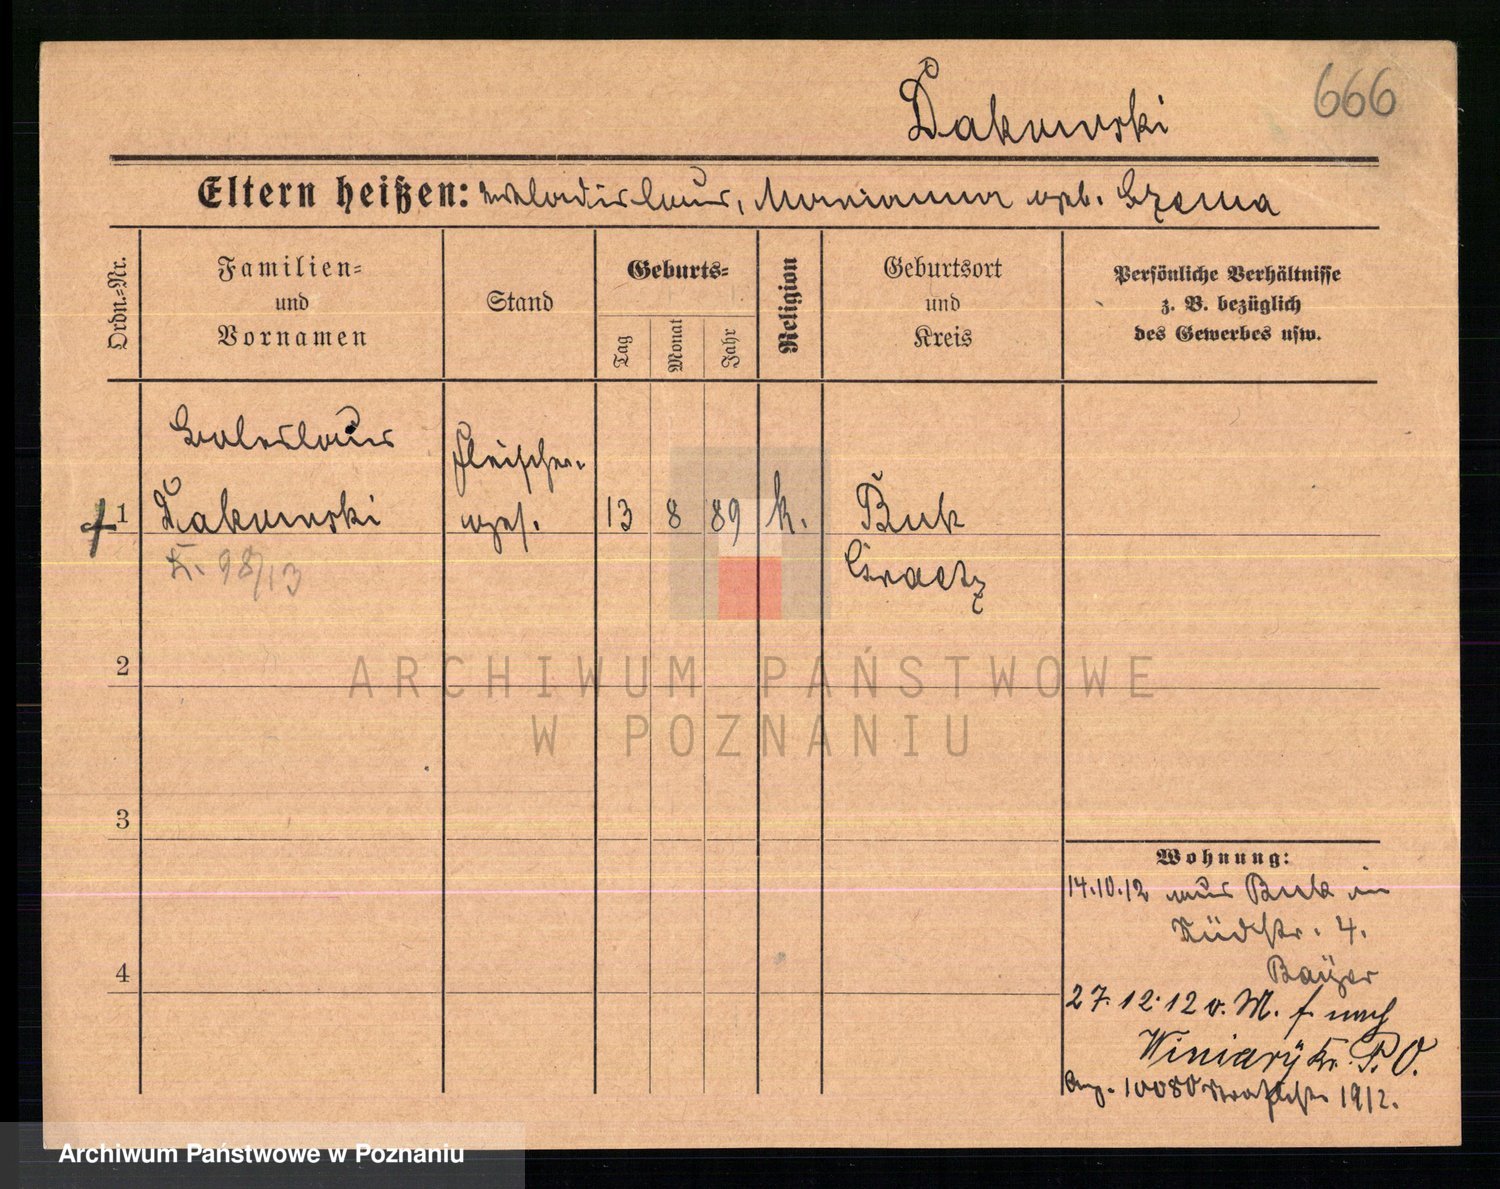 666
Żakowski
Eltern heißen: Wladislaus, Marianna geb. Szema
Ordn.-Nr.
Familien-
und
Vornamen
Stand
Geburts-
Tag
Monat
Jahr
Religion
Geburtsort
und
Kreis
Persönliche Verhältnisse
z. B. bezüglich
des Gewerbes usw.
Boleslaus
Fleischer-
1 Żakowski ges. 13 8 89 k. Buk
K. 98/13
Graetz
ARCHIWUM PAŃSTWOWE
W POZNANIU
2
3
4
Wohnung:
14.10.12 aus Buk in
Südstr. 4.
Bayer
27.12.12 v. M. f. nach
Winiary Kr. P. O.
1912.
Archiwum Państwowe w Poznaniu